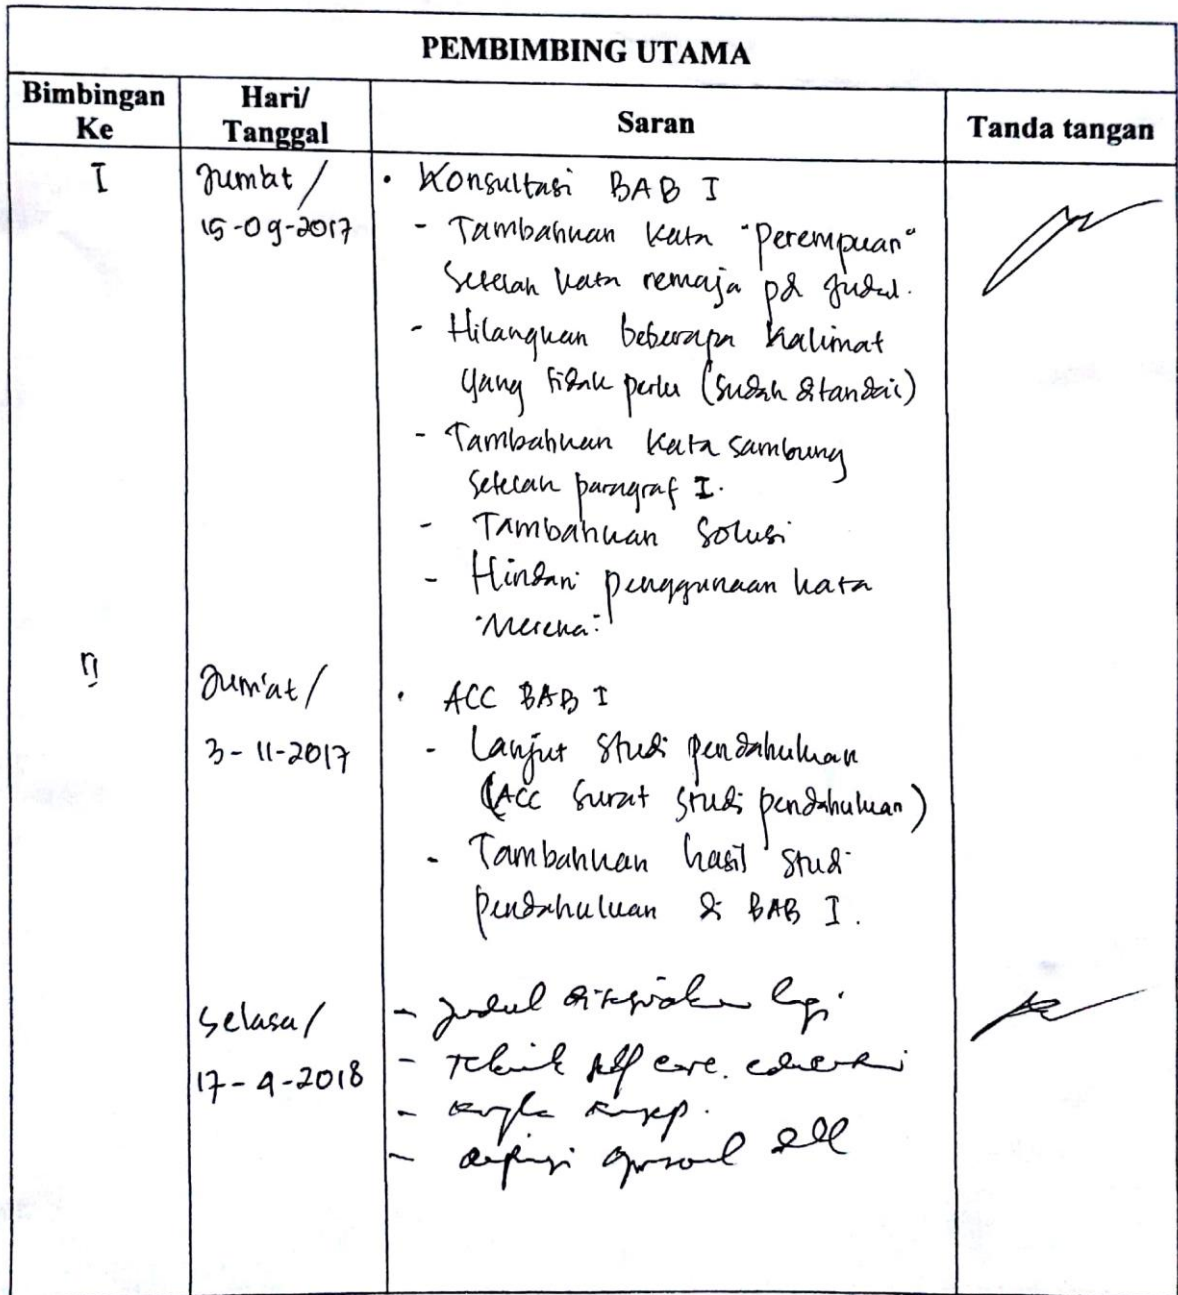 PEMBIMBING UTAMA
Bimbingan Ke
Hari/ Tanggal
Saran
Tanda tangan
I
Jumat /
15-09-2017
• Konsultasi BAB I
- Tambahkan kata "Perempuan"
Setelah kata remaja pd judul.
- Hilangkan beberapa kalimat
yang tidak perlu (sudah ditandai)
- Tambahkan kata sambung
setelah paragraf I.
- Tambahkan solusi
- Hindari penggunaan kata
"Mereka."
II
Jum'at /
3-11-2017
• ACC BAB I
- Lanjut studi pendahuluan
(ACC surat studi pendahuluan)
- Tambahkan hasil studi
pendahuluan di BAB I.
Selasa /
17-4-2018
- Judul
- Teknik self care
-
-